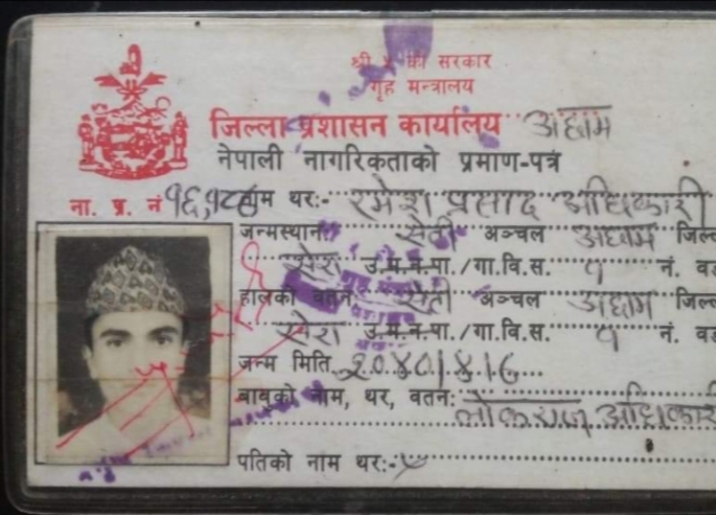 श्री ५ को सरकार
गृह मन्त्रालय
जिल्ला प्रशासन कार्यालय अछाम
नेपाली नागरिकताको प्रमाण-पत्र
ना. प्र. नं नाम थर:- रमेश प्रसाद अधिकारी
जन्मस्थान सेती अञ्चल अछाम जिल्
सेरा उ.म.न.पा./गा.वि.स. १ नं. वड
हालको वतन सेती अञ्चल अछाम जिल्
सेरा उ.म.न.पा./गा.वि.स. १ नं. वड
जन्म मिति २०४०।४।६
बाबुको नाम, थर, वतन: अधिकारी
पतिको नाम थर:-